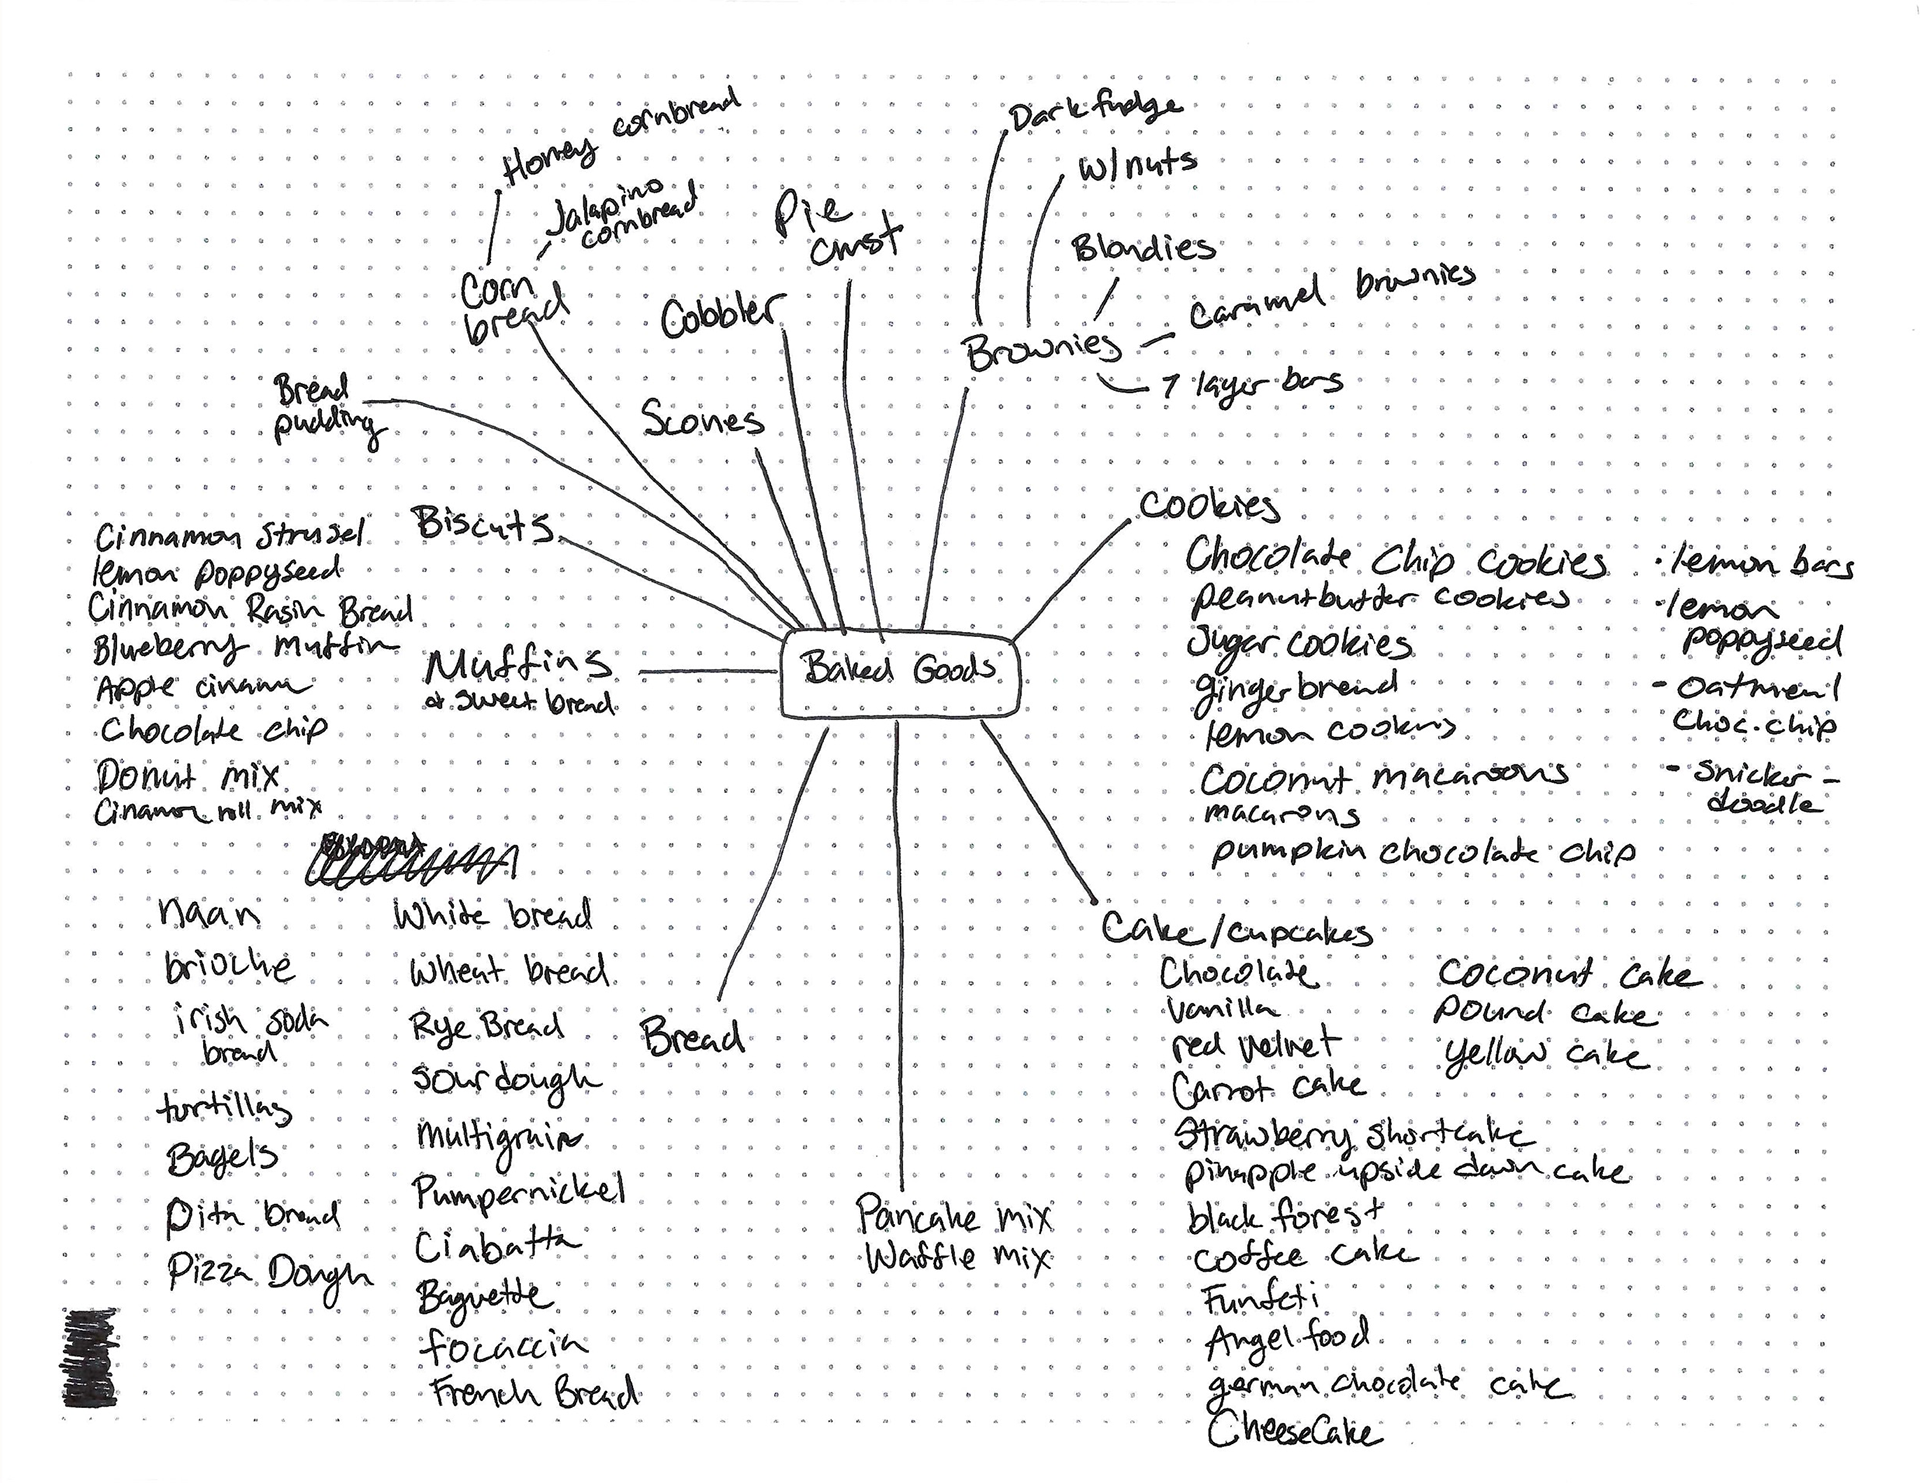 Honey cornbread
Jalapino
cornbread
Corn
bread
Pie
crust
Cobbler
Scones
Dark fudge
w/nuts
Blondies
Caramel brownies
Brownies
7 layer bars
Bread
pudding
Biscuts
Muffins
& sweet bread
Cinnamon Strusel
lemon poppyseed
Cinnamon Rasin Bread
Blueberry Muffin
Apple cinamn
Chocolate chip
Donut mix
Cinamon roll mix
Baked Goods
Cookies
Chocolate Chip Cookies
peanutbutter cookies
Sugar cookies
gingerbread
lemon cookies
Coconut macaroons
macarons
pumpkin chocolate chip
· lemon bars
· lemon
poppyseed
- Oatmeal
Choc. chip
- Snicker-
doodle
Cake/cupcakes
Chocolate
Vanilla
red velvet
Carrot cake
Strawberry shortcake
pinapple upside down cake
black forest
coffee cake
Funfeti
Angel food
german chocolate cake
CheeseCake
Coconut cake
Pound cake
yellow cake
Pancake mix
Waffle mix
Bread
White bread
Wheat bread
Rye Bread
Sourdough
Multigrain
Pumpernickel
Ciabatta
Baguette
focaccia
French Bread
naan
brioche
irish soda
bread
tortillas
Bagels
Pita bread
Pizza Dough